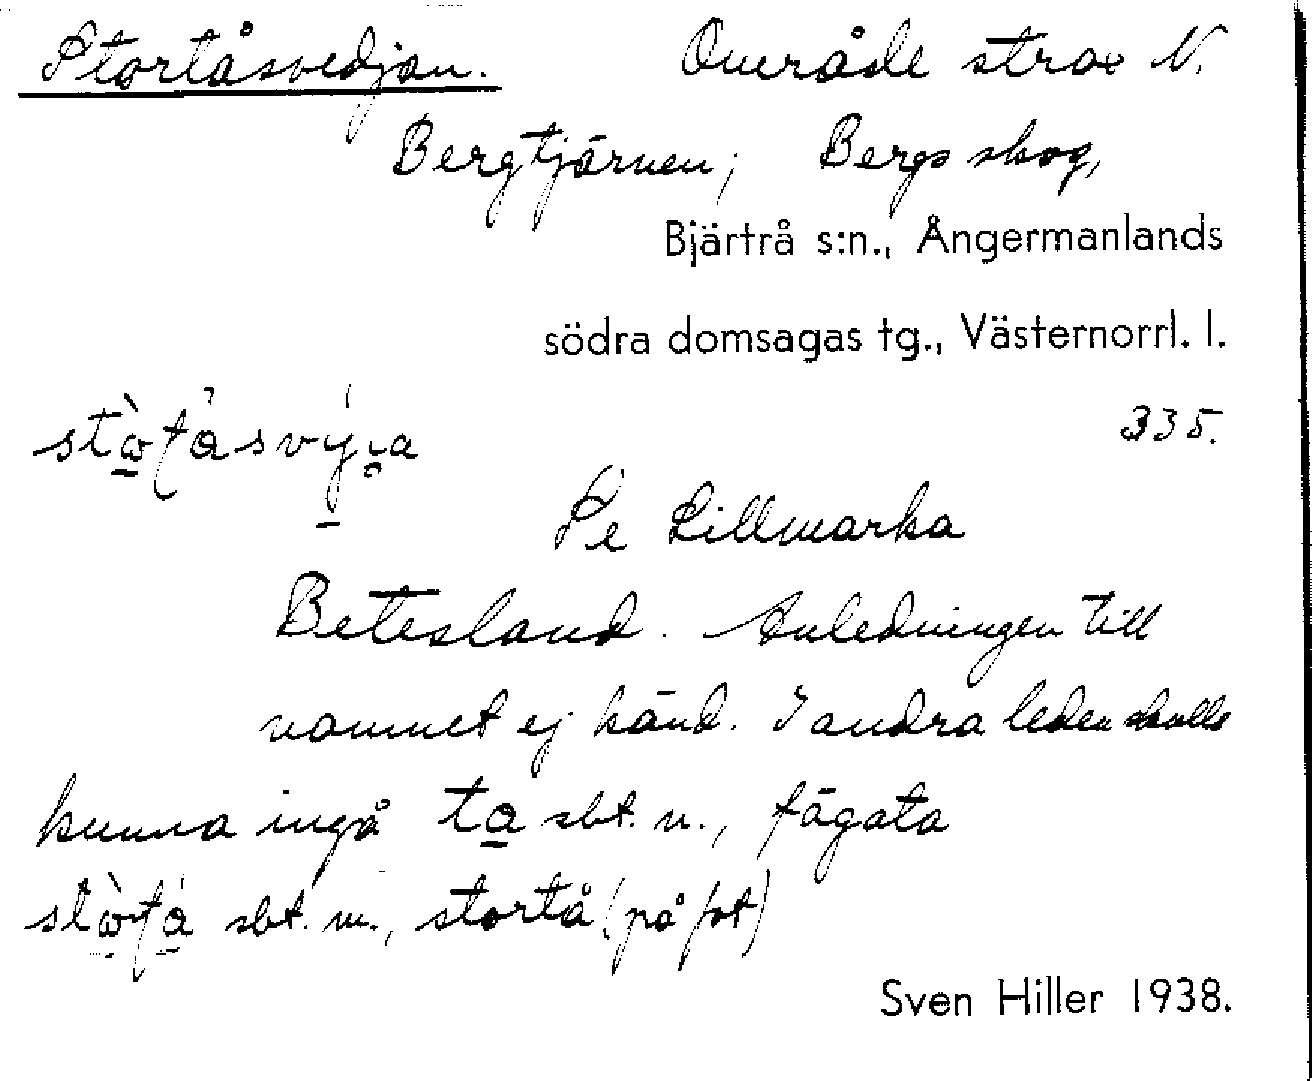 Stortåsvedjan. Område strax N.
Bergtjärnen; Bergs skog,
Bjärtrå s:n., Ångermanlands
södra domsagas tg., Västernorrl. l.
335.
Se Lillmarka
Betesland. Anledningen till
namnet ej känd. I andra leden skulle
kunna ingå ta sbt. n., fägata
sbt. m., stortå (på fot)
Sven Hiller 1938.